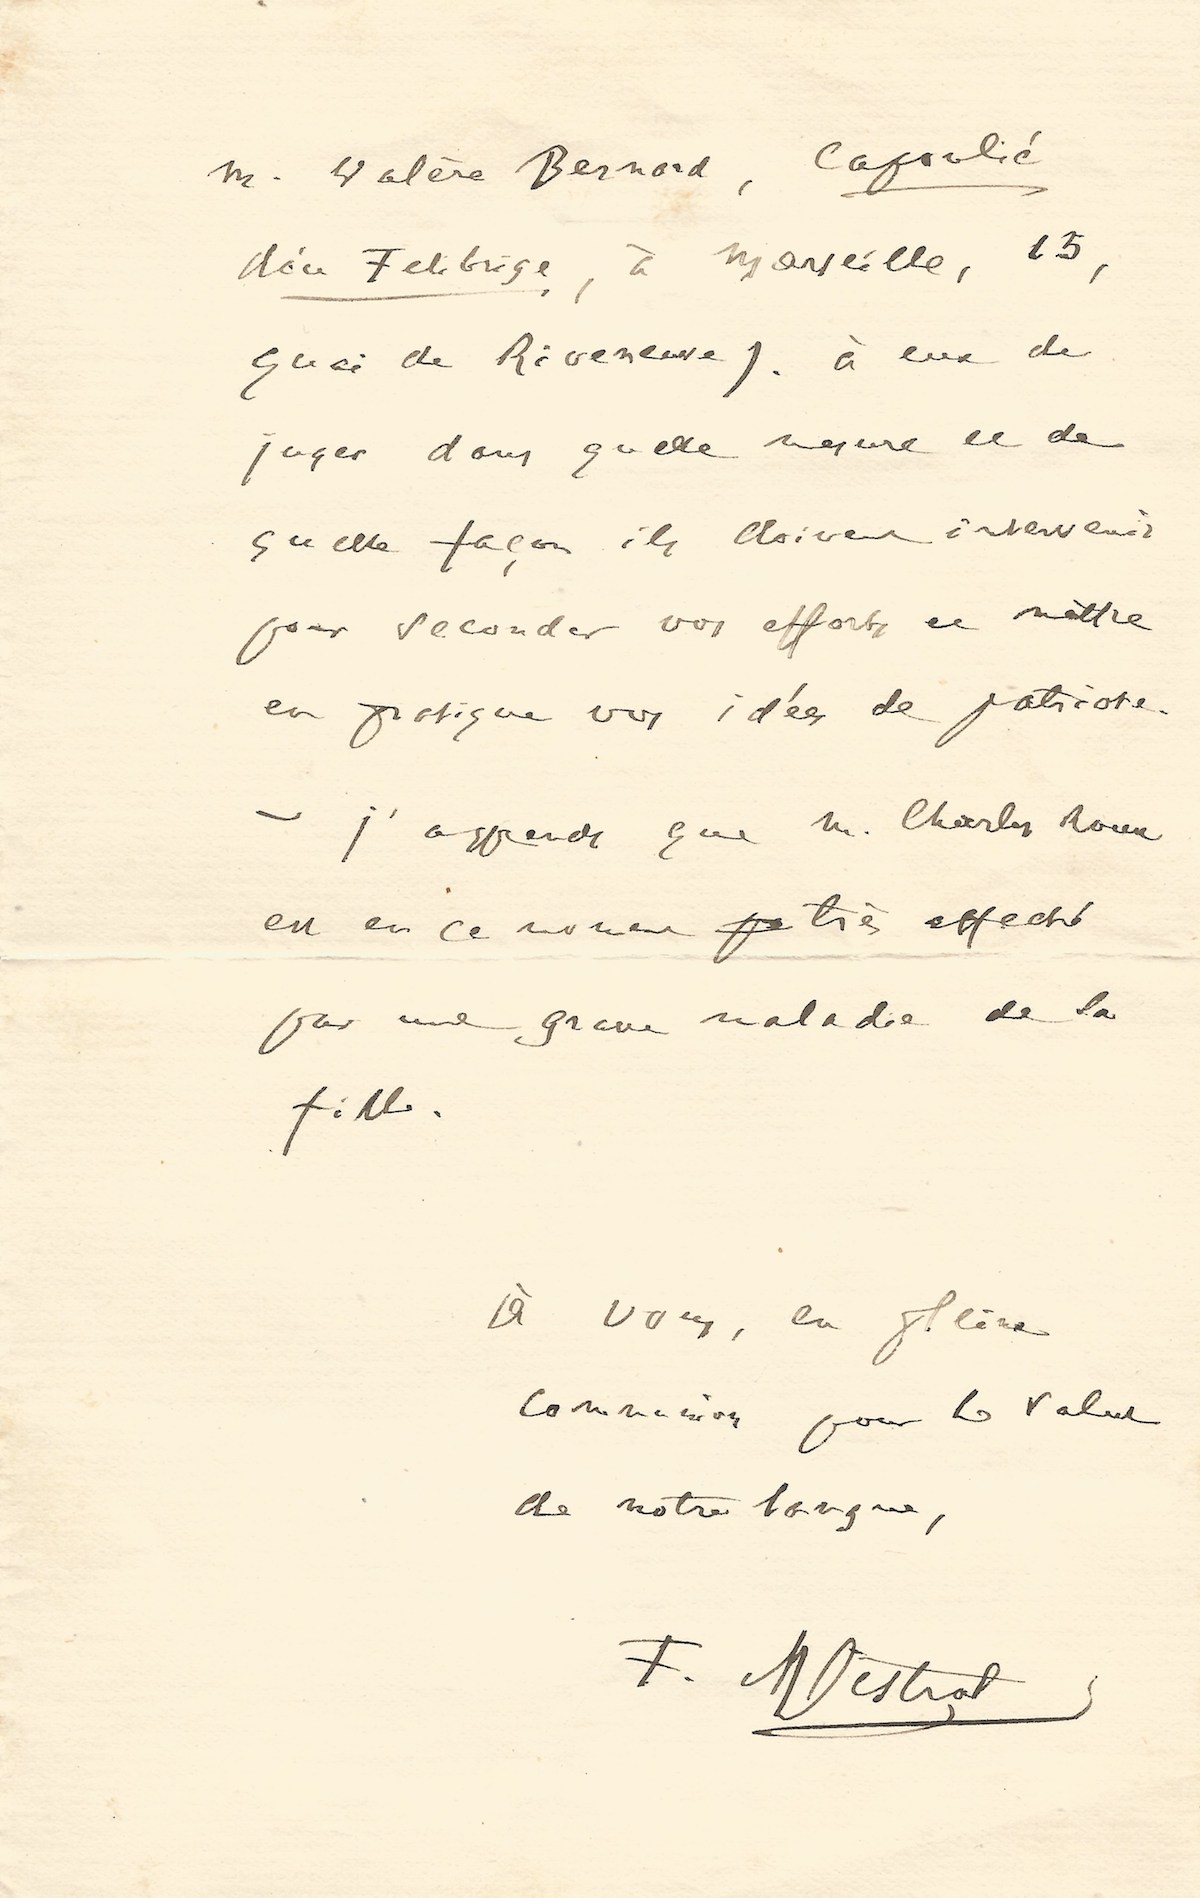 M. Valère Bernard, Capoulié
dóu Felibrige, à Marseille, 15,
quai de Riveneuve). à eux de
juger dans quelle mesure et de
quelle façon ils doivent intervenir
pour seconder vos efforts et mettre
en pratique vos idées de patriote.
– j'apprends que M. Charles Roux
est en ce moment très affecté
par une grave maladie de sa
fille.
À vous, en pleine
communion pour le salut
de notre langue,
F. Mistral